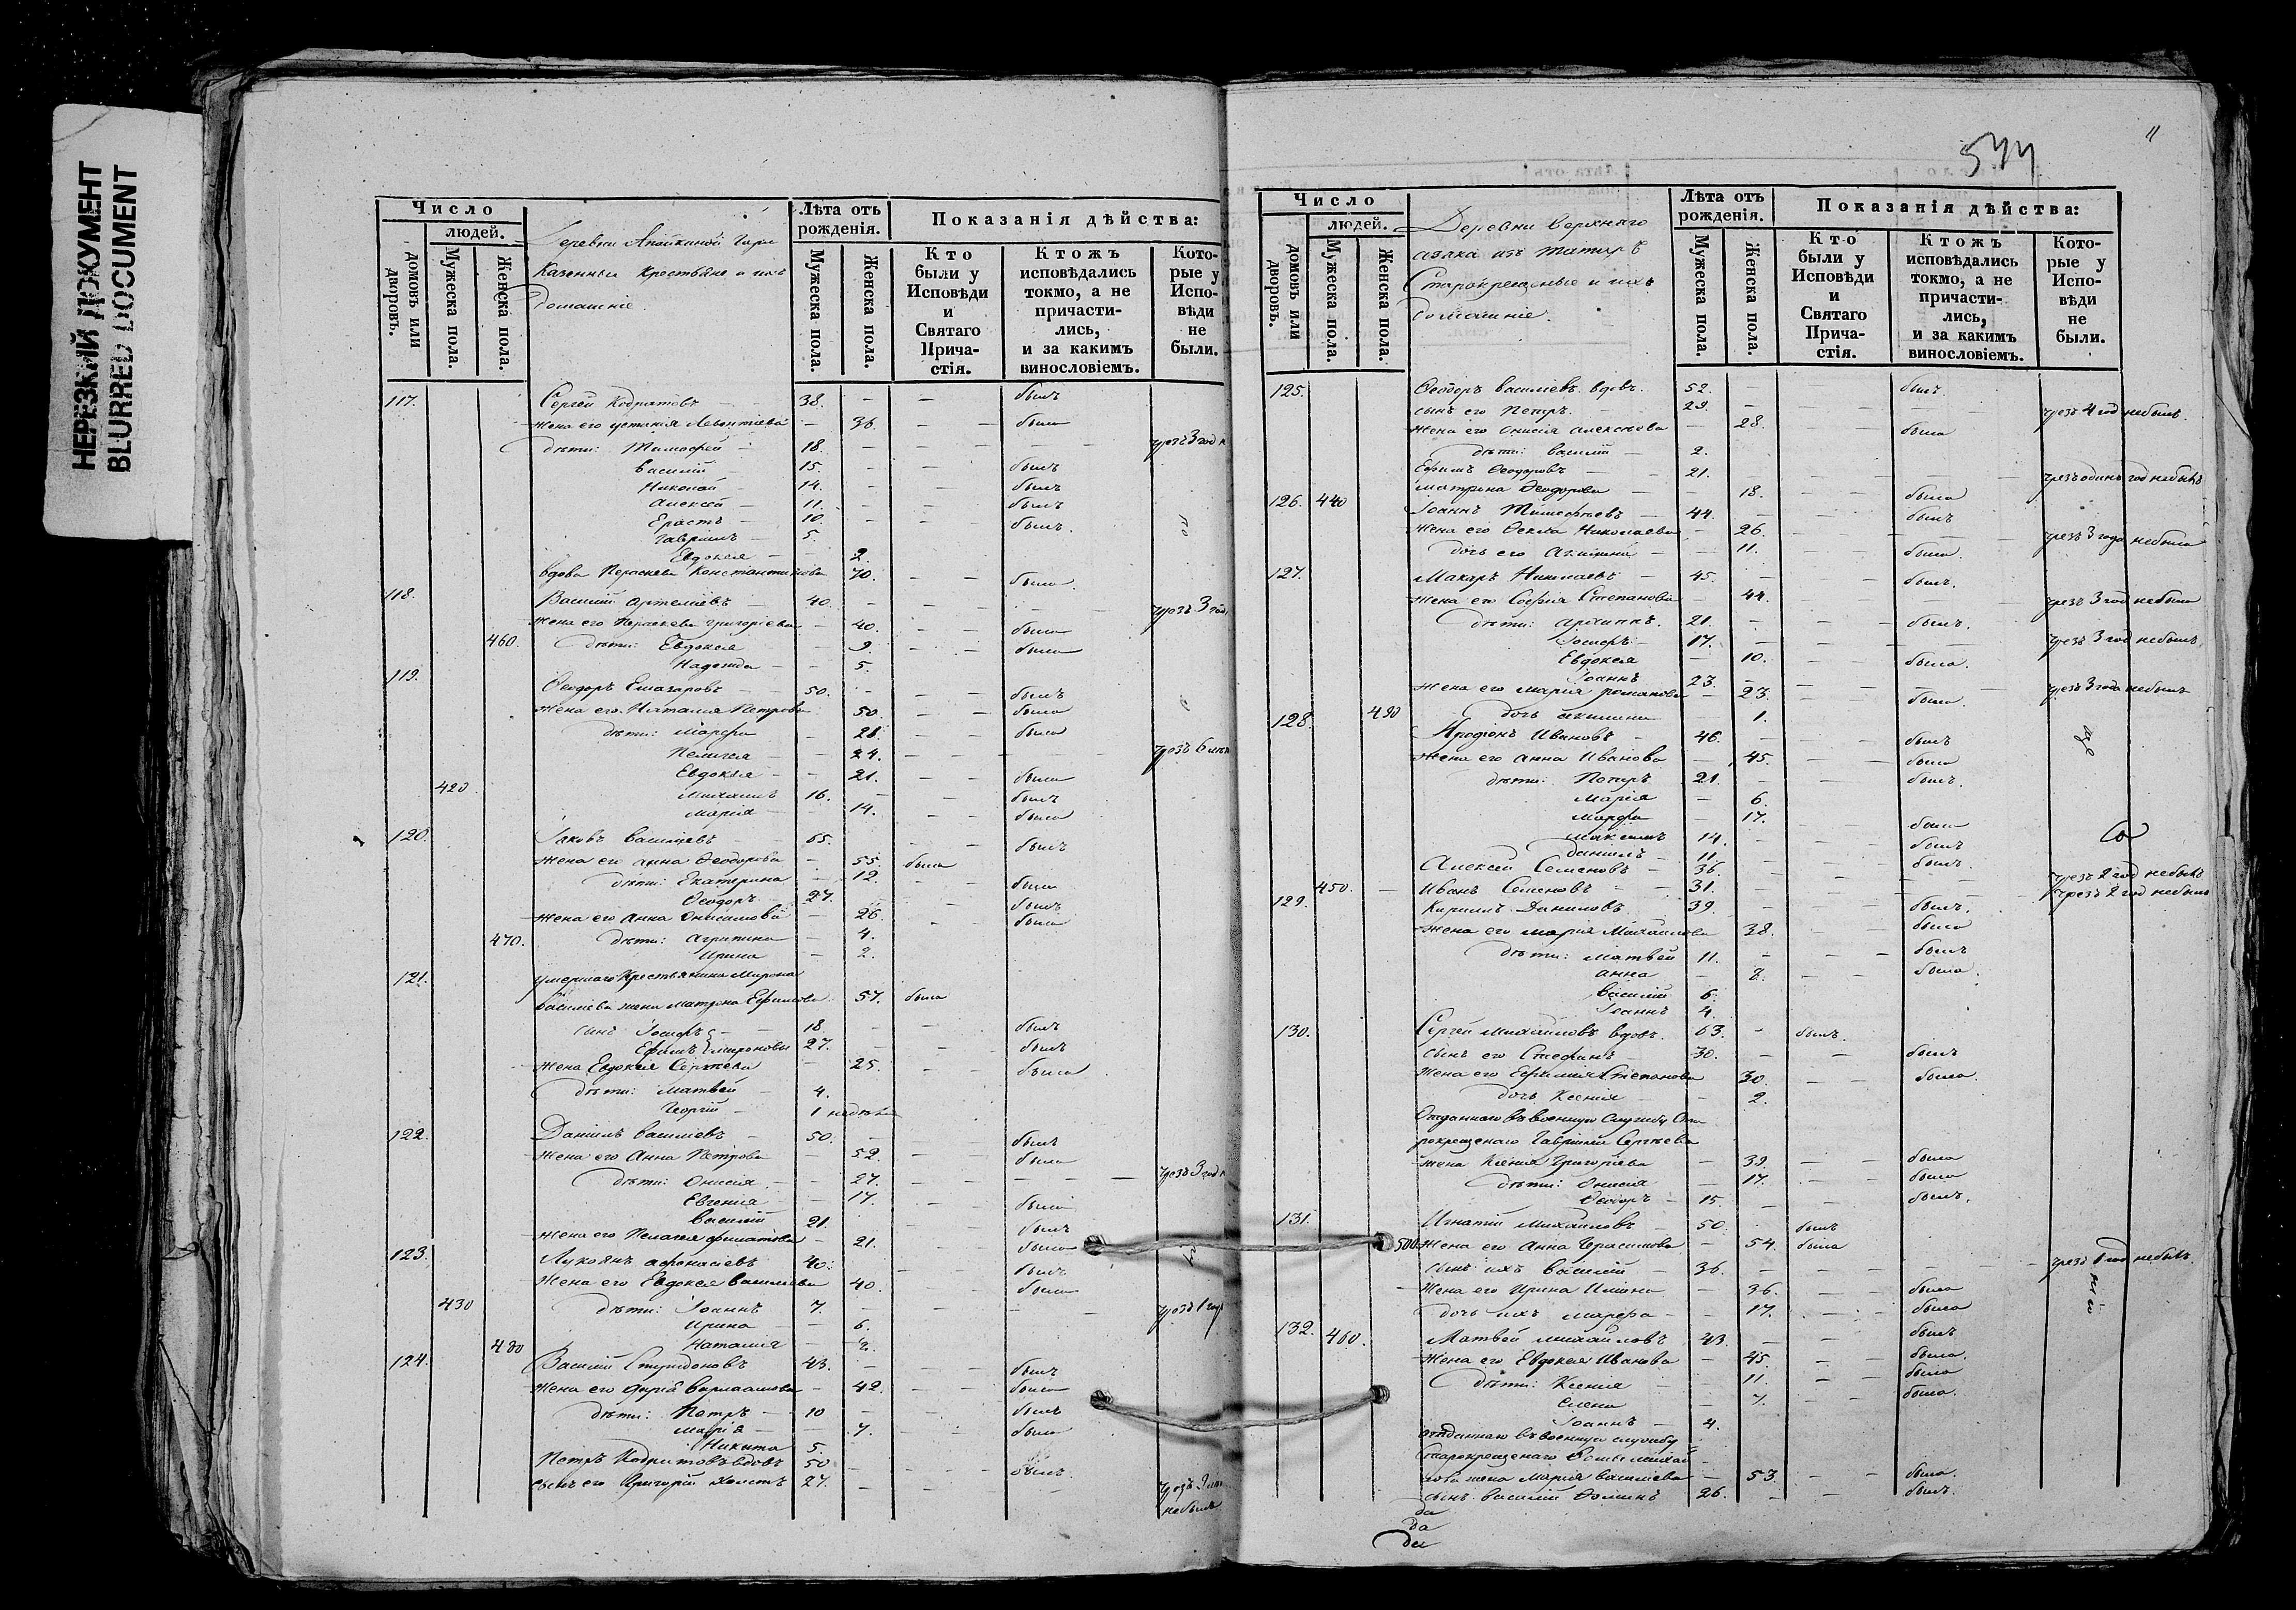 НЕРЕЗКИЙ ДОКУМЕНТ
BLURRED DOCUMENT
Число
людей.
домовъ или дворовъ.
Мужеска пола.
Женска пола.
Деревни Апайкиной Гари
Казенные Крестьяне и ихъ
Домашніе.
Лѣта отъ рожденія.
Мужеска пола.
Женска пола.
Показанія дѣйства:
Кто были у Исповѣди и Святаго Причастія.
Ктожъ исповѣдались токмо, а не причастились, и за какимъ винословіемъ.
Которые у Исповѣди не были.
117. Сергей Кодратовъ 38. — — былъ
жена его Устинія Леонтіева — 36. — — была
дѣти: Тимофей — 18. — — — чрезъ 3 год н
Василій — 15. — — былъ
Николай — 14. — — былъ
Алексей — 11. — — былъ
Ерастъ — 10. — — былъ.
Гавріилъ — 5.
Евдокея — — 2.
вдова Параскева Константинова 70. — — была
118. Василий Артемьевъ — 40. — — — чрезъ 3 год
жена его Параскева Григоріева — 40. — — была
460. дѣти: Евдокея — 9 — — была
Надежда — — 5.
119. Ѳеодоръ Елазаровъ — 50. — — былъ
жена его Наталія Петрова 50. — — была
дѣти: Марфа — 28. — — была
Пелагея — 24. — — чрезъ 6 лѣтъ
Евдокея — — 21. — — была
420 Михаилъ 16. — — былъ
Марія — 14. — была
120. Іаковъ Васильевъ — 65. — — былъ
жена его Анна Ѳеодорова — 55. была
дѣти: Екатерина — 12. — — была
Ѳеодоръ 27. — былъ
жена его Анна Онисимова — 26. — — была
470. дѣти: Агрипина — 4.
Ирина — 2.
121. умершаго Крестьянина Мирона
Васильева жена Матрона Ефимова 57. была
сынъ Іосифъ — 18. — — былъ
Ефимъ Мироновы 27. — — былъ
жена Евдокея Сергѣева — 25. — — была
дѣти: Матвей — 4.
Георгій — 1 недѣли
122. Даніилъ Васильевъ — 50. — былъ
жена его Анна Петрова — 52. — была
дѣти: Онисия — — 27. — — — чрезъ 3 год н
Евгения — 17. — — была
Василій 21. — — былъ
жена его Пелагея Филатова — 21. — — была
123. Лукоянъ Афонасіевъ 40. — — былъ
жена его Евдокея Васильева 40. — — была
430 дѣти: Іоаннъ 7. — — — чрезъ 1 год
Ирина — — 6.
480 Наталия — 2.
124. Василій Спиридоновъ 43. — былъ
жена его Дарія Варлаамова — 42. — — была
дѣти: Петръ — 10 — — былъ
Марія — — 7. — — была
Никита 5.
Петръ Кодратовъ вдовъ 50 — — былъ.
сынъ его Григорій холостъ 27. — — чрезъ 3
не былъ
11
544
Число
людей.
домовъ или дворовъ.
Мужеска пола.
Женска пола.
Деревни Верхняго
Азяка изъ татаръ
Старокрещеные и ихъ
Домашніе.
Лѣта отъ рожденія.
Мужеска пола.
Женска пола.
Показанія дѣйства:
Кто были у Исповѣди и Святаго Причастія.
Ктожъ исповѣдались токмо, а не причастились, и за какимъ винословіемъ.
Которые у Исповѣди не были.
125. Ѳеодоръ Васильевъ вдовъ. 52. — былъ.
сынъ его Петръ. 29. — — — чрезъ 4 год не былъ.
жена его Онисія Алексѣева — 28. — была
дѣти: Василій — 2.
Ефимъ Ѳеодоровъ — 21. — — чрезъ одинъ год не былъ
Матрена Ѳеодорова — 18. — — была
126. 440 Іоаннъ Тимофѣевъ — 44. — — былъ
жена его Ѳекла Николаева — 26. — — чрезъ 3 года не была
дочь его Агипина — 11. — — была.
127. Макаръ Николаевъ — 45. — — былъ.
жена его Софія Степанова — 44. — — чрезъ 3 год не была
дѣти: Архиппъ. 21. — — былъ.
Іосифъ 17. — — чрезъ 3 год не былъ,
Евдокея — 10. — — была.
Іоаннъ 23. — — чрезъ 3 года не былъ
жена его Марія Романова — 23. — — была.
490 дочь Акилина — 1.
128. Иродіонъ Ивановъ — 46. — — былъ
жена его Анна Иванова — 45. — — была
дѣти: Петръ 21. — — былъ.
Марія — 6.
Марфа — 17. — была
Максимъ 14. — — былъ
Даніилъ — 11. — — былъ.
Алексей Семеновъ — 36. — — чрезъ 2 год не былъ
450. Иванъ Семеновъ — 31. — — чрезъ 2 год не былъ
129. Кирилъ Даниловъ 39. — — былъ.
жена его Мария Михаилова 38. — — была
дѣти: Матвей 11. — — былъ
Анна — 7. — — была.
Василій 6.
Іоаннъ 4.
130. Сергей Михайловъ вдовъ. 63. — былъ.
сынъ его Стефанъ — 30. — — былъ
жена его Ефимия Степанова 30. — — была.
дочь Ксения — — 2.
Отданнаго въ военную службу Ста
рокрещенаго Гавріила Сергѣева
жена Ксения Григоріева — 39. — — была
дѣти: Онисия — 17. — — была
Ѳеодоръ — 15. — — былъ.
131. Игнатій Михайловъ — 50. былъ
500. жена его Анна Герасимова — 54. была
сынъ ихъ Василий — 36. — — — чрезъ 1 год не былъ.
жена его Ирина Ильина — 36. — — была
дочь ихъ Марфа — 17. — — была
132. 460. Матвей Михайловъ 43. — — былъ
жена его Евдокея Иванова — 45. — — была.
дѣти: Ксения — 11. — — была
Елена — 7. — — была.
Іоаннъ — 4.
отданнаго въ военную службу
Старокрещенаго Ѳомы Михай
лова жена Мария Васильева — 53. — — была.
сынъ Василий Ѳоминъ 26. — — былъ.
да
да
да